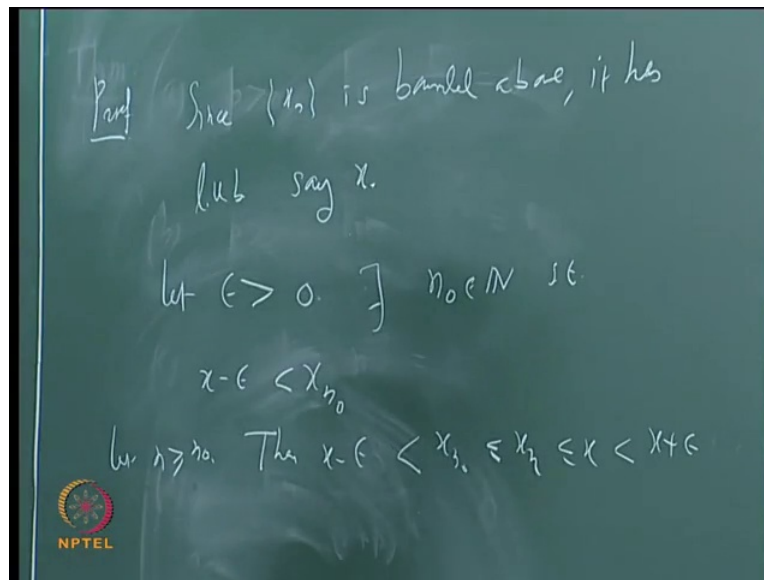 Proof Since {x_n} is bounded above, it has
l.u.b say x.
let ϵ > 0. ∃ n_0 ∈ ℕ s.t.
x-ϵ < x_{n_0}
let n ≥ n_0. Then x-ϵ < x_{n_0} ≤ x_n ≤ x < x+ϵ
NPTEL